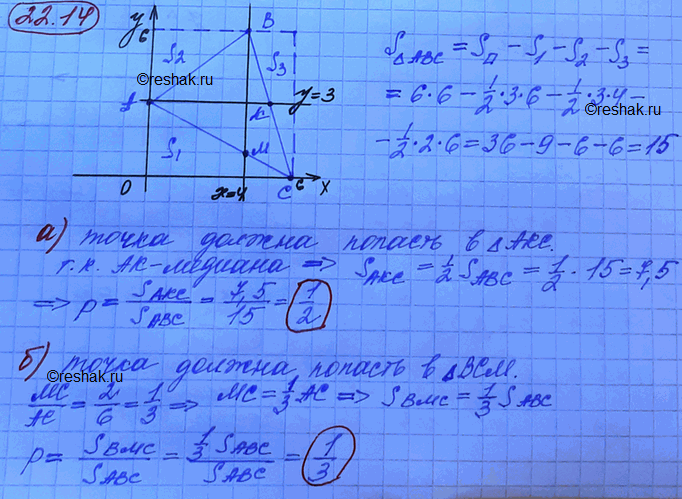 22.14
y
6
B
S2
S3
©reshak.ru
A
K
y=3
S1
M
0
x=4
C
6
x
S△ABC = S□ - S1 - S2 - S3 =
= 6·6 - 1/2·3·6 - 1/2·3·4 -
- 1/2·2·6 = 36 - 9 - 6 - 6 = 15
а) точка должна попасть в △AKC.
т.к. AK - медиана ⇒ S AKC = 1/2 S ABC = 1/2 · 15 = 7,5
⇒ p = S AKC / S ABC = 7,5/15 = 1/2
б) точка должна попасть в △BCM.
©reshak.ru
MC/AC = 2/6 = 1/3 ⇒ MC = 1/3 AC ⇒ S BMC = 1/3 S ABC
p = S BMC / S ABC = 1/3 S ABC / S ABC = 1/3